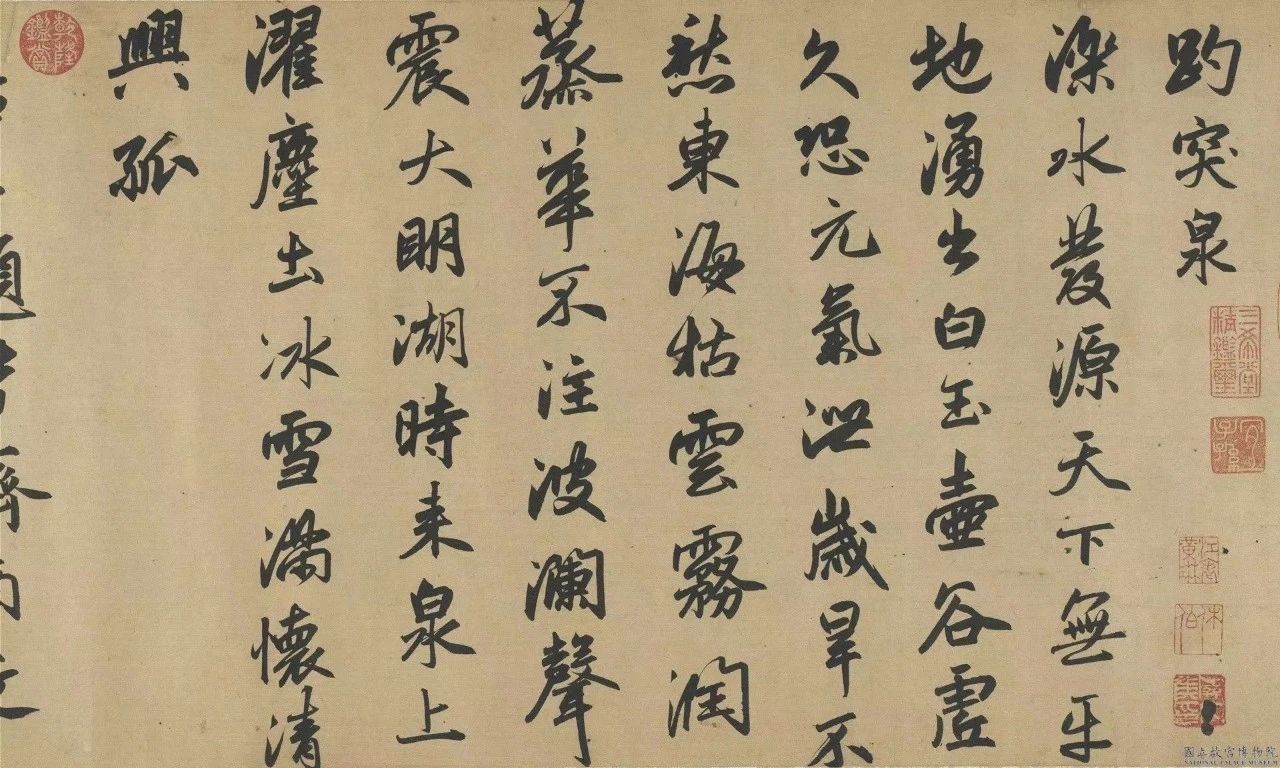 趵突泉
濼水發源天下無平
地湧出白玉壺谷虛
久恐元氣泄歲旱不
愁東海枯雲霧潤
蒸華不注波瀾聲
震大明湖時来泉上
濯塵土冰雪滿懷清
興孤
三希堂精鑑璽
宜子孫
乾隆鑑賞
國立故宮博物院
NATIONAL PALACE MUSEUM